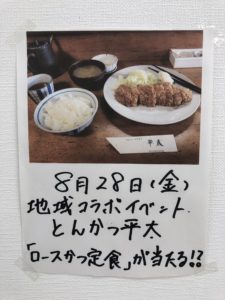 8月28日(金)
地域コラボイベント.
とんかつ平太
「ロースかつ定食」が当たる!?